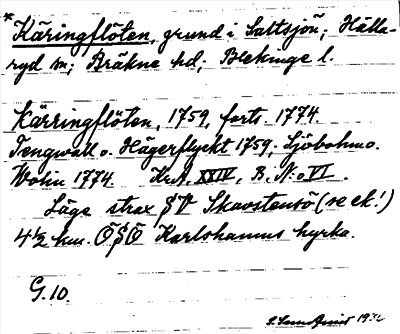 * Käringflöten, grund i Saltsjön; Hälla-
ryd sn; Bräkne hd; Blekinge l.
Kärringflöten, 1759, forts. 1774
Tengwall o. Hägerflyckt 1759; Ljöbohm o.
Wohn 1774 Kr.A. XXIV, B. N:o VI.
Läge strax SV Skavstensö (se ek!)
4½ km. ÖSÖ Karlshamns kyrka.
G. 10.
1934